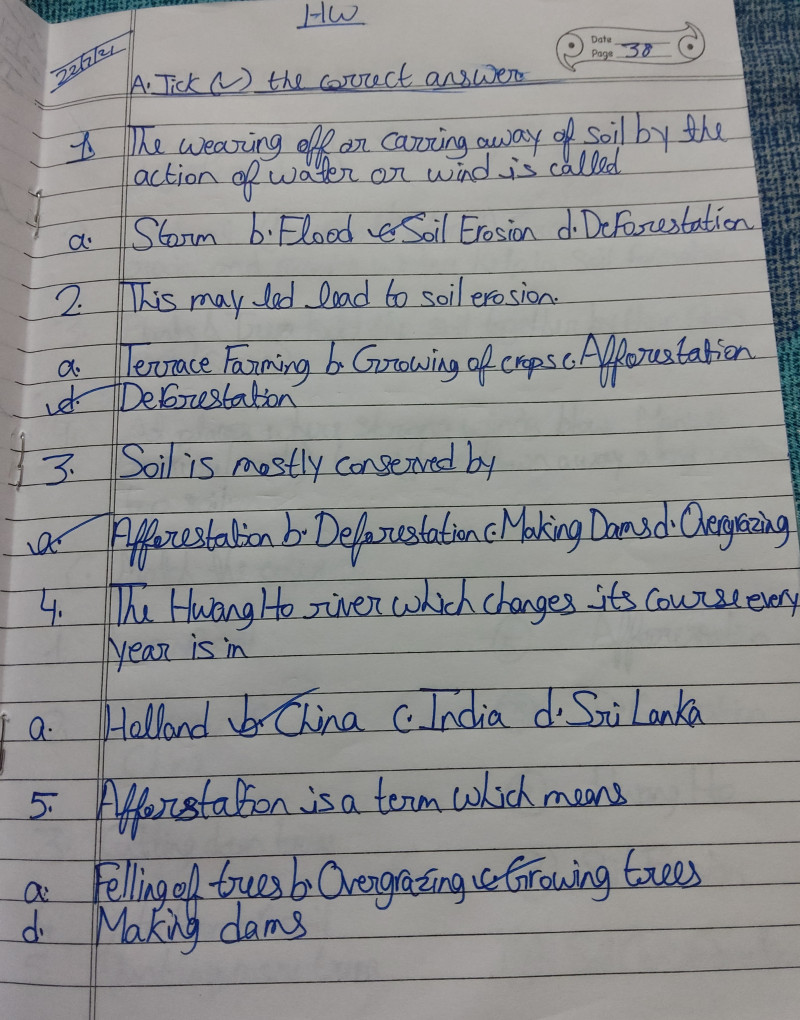 HW
22/7/21
Date
Page 38
A. Tick (✓) the correct answer
1 The wearing off or carring away of soil by the
action of water or wind is called
a. Storm b. Flood c Soil Erosion d. Deforestation
2. This may led lead to soil erosion.
a. Terrace Farming b. Growing of crops c. Afforestation
d. Deforestation
3. Soil is mostly conserved by
a. Afforestation b. Deforestation c. Making Dams d. Overgrazing
4. The Hwang Ho river which changes its course every
year is in
a. Holland b. China c. India d. Sri Lanka
5. Afforstation is a term which means
a. Felling of trees b. Overgrazing c Growing trees
d. Making dams